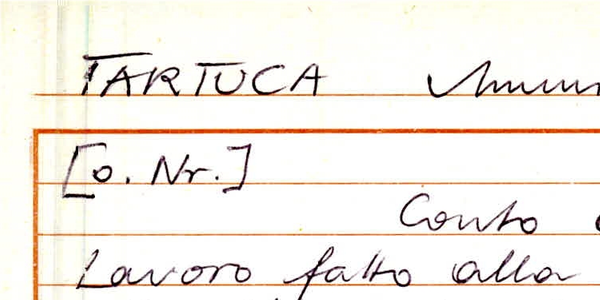 TARTUCA
[o. Nr.]
Conto
Lavoro fatto alla